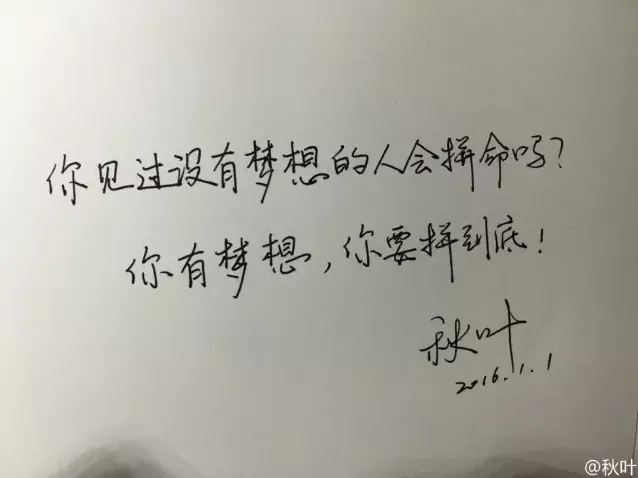 你见过没有梦想的人会拼命吗?
你有梦想,你要拼到底!
秋叶
2016.1.1
@秋叶